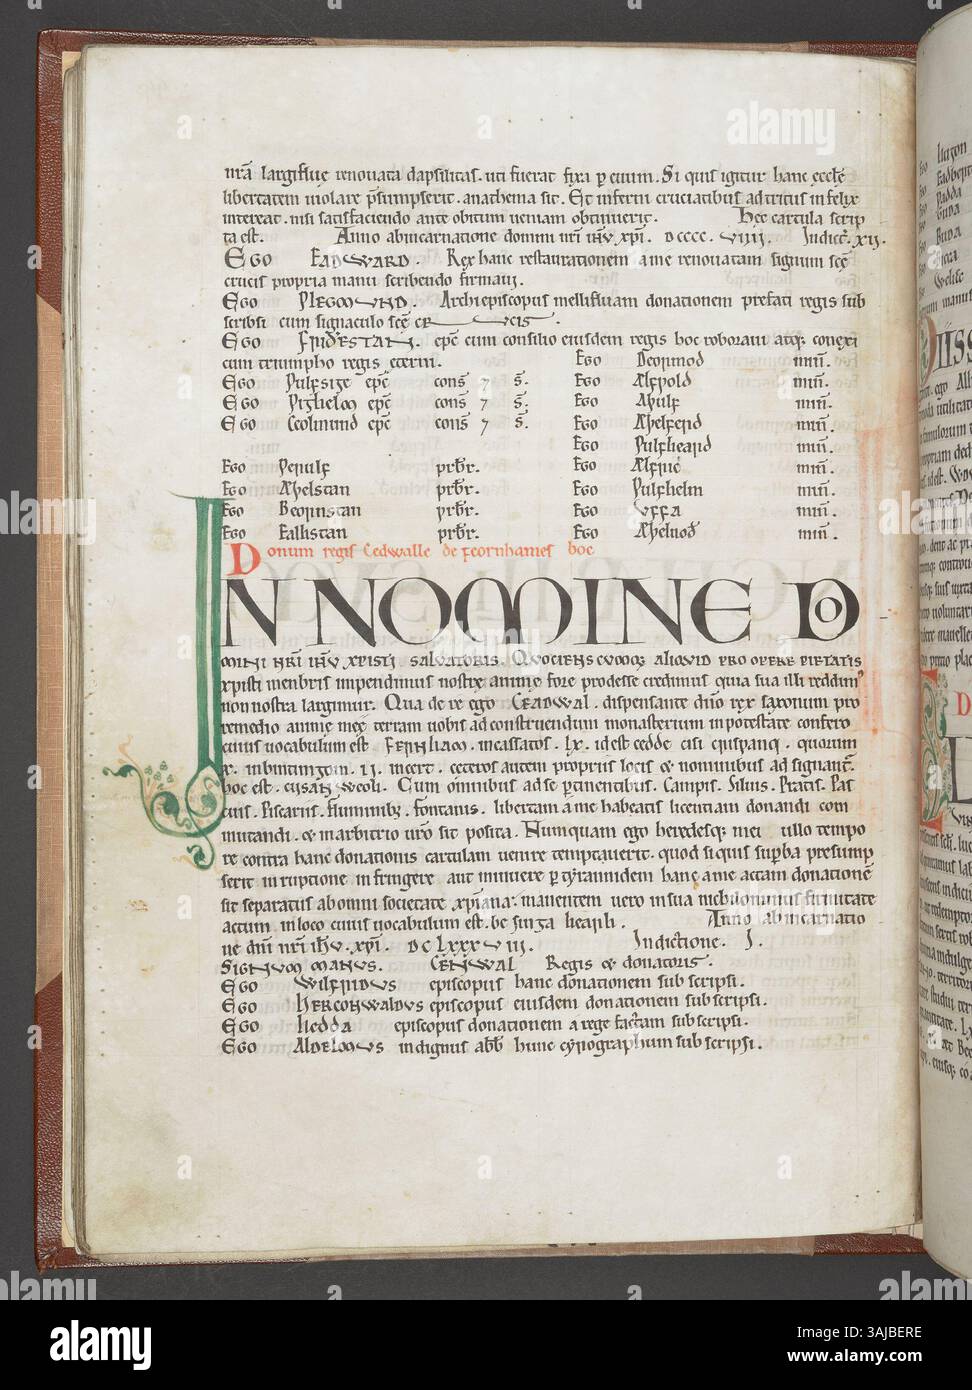 nrā largiflue renouata dapsilitas. uti fuerat fixa p euum. Si quis igitur hanc eccle
libertatem uiolare psumpserit. anathema sit. Et inferni cruciatibus adtritus infelix
intereat. nisi satisfaciendo ante obitum ueniam obtinuerit. Hec cartula scrip
ta est. Anno abincarnatione domini nri ihu xpi. DCCCC. VIIII. Indict. xii.
EGO EADWARD. Rex hanc restaurationem a me renouatam signum scē
crucis propria manu scribendo firmaui.
EGO PLEGMUND. Archiepiscopus mellifluam donationem prefati regis sub
scribsi cum signaculo scē crucis.
EGO FRIDESTAN. epc cum consilio eiusdem regis hoc roboraui atq; conexi
cum triumpho regis eterni.
EGO Þulfsige epc cons 7 s. Ego Deormod min.
EGO Þighelm epc cons 7 s. Ego Ælfpold min.
EGO Ceolmund epc cons 7 s. Ego Aþulf min.
Ego Æþelferd min.
Ego Þulfheard min.
Ego Þerulf prbr. Ego Ælfric min.
Ego Æþelstan prbr. Ego Þulfhelm min.
Ego Beornstan prbr. Ego UFFA min.
Ego Ealhstan prbr. Ego Æþelnod min.
Donum regis Cedwalle de feornhames boc
IN NOMINE DO
MINI NRI IHU XPISTI SALVATORIS. QUOCIENSCUMQ; ALIQUID PRO OPERE PIETATIS
xpisti menbris impendimus nostre anime fore prodesse credimus quia sua illi reddim'
non nostra largimur. Qua de re ego CEADWAL. dispensante dno rex saxonum pro
remedio anime mee terram uobis ad construendum monasterium in potestate confero
cuius uocabulum est FERNHAM. incassatos. lx. id est cedde cisi crispanq. quorum
x. inbintungom. ii. incert. ceteros autem propriis locis & nominibus adsignant.
hoc est. cusanweoh. Cum omnibus ad se pertinentibus. Campis. Siluis. Pratis. Pas
cuis. Piscariis. fluminibus. fontanis. libertam a me habeatis licentiam donandi com
mutandi. & in arbitrio uro sit posita. Numquam ego heredesq; mei ullo tempo
re contra hanc donationis cartulam uenire temptauerit. quod si quis supba presump
serit inruptione infringere aut inuiuere p tyrannidem hanc a me actam donationē
sit separatus ab omni societate xpiana. manentem uero in sua nichilominus firmitate
actum in loco cuius uocabulum est. be firga heafli. Anno abincarnatio
ne dni nri ihu. xpi. DCLXXXVIII. Indictione. I.
SIGNUM MANUS. CENWAL Regis & donatoris.
EGO WILFRIDUS episcopus hanc donationem subscripsi.
EGO HERCONWALDUS episcopus eiusdem donationem subscripsi.
EGO HEDDA episcopus donationem a rege factam subscripsi.
EGO ALDELMUS indignus abb hunc cyrographum subscripsi.
alamy
Image ID: 3AJBERE
www.alamy.com